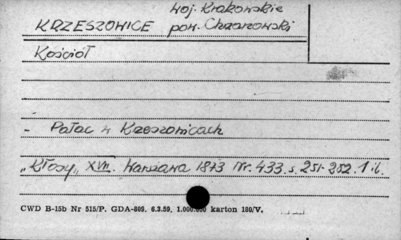 woj. Krakowskie
KRZESZOWICE pow. Chrzanowski
Kościół
- Pałac w Krzeszowicach
"Kłosy" XVII. Warszawa 1873 Nr. 433. s. 251-252. 1 il.
CWD B-15b Nr 515/P. GDA-809. 6.3.59. 1.000.000 karton 180/V.